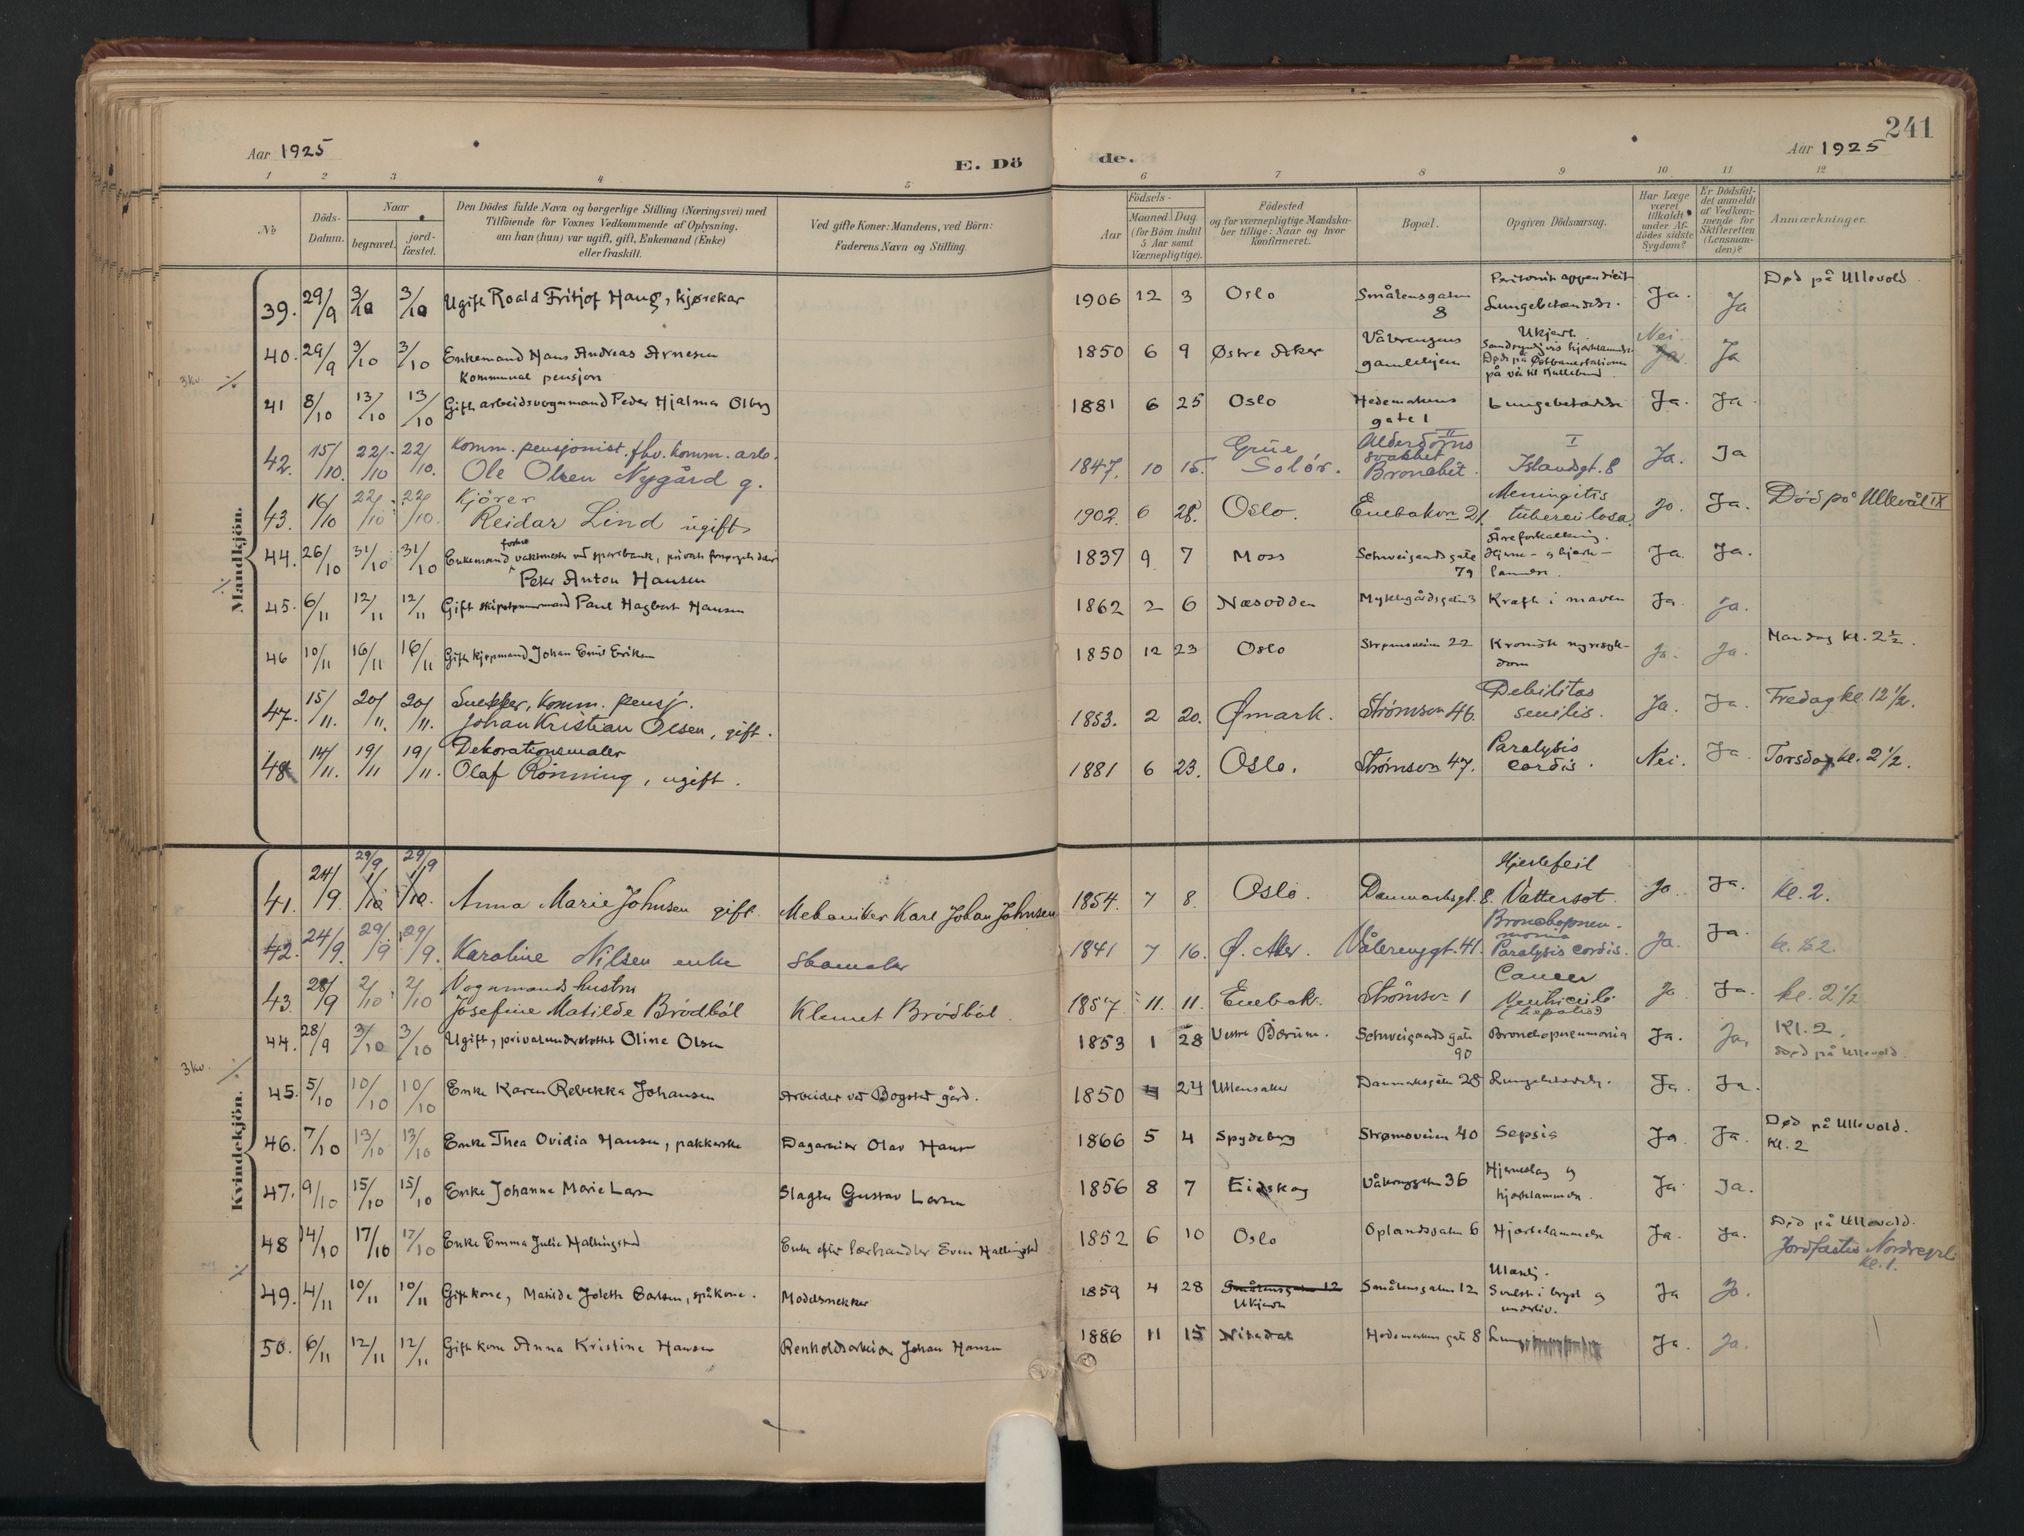 241
Aar 1925
E. Döde.
Aar 1925
1 2 3 4 5 6 7 8 9 10 11 12
No
Döds-Datum.
Naar
begravet.
jord-fæstet.
Den Dödes fulde Navn og borgerlige Stilling (Næringsvei) med
Tilföiende for Voxnes Vedkommende af Oplysning,
om han (hun) var ugift, gift, Enkemand (Enke)
eller fraskilt.
Ved gifte Koner: Mandens, ved Börn:
Faderens Navn og Stilling.
Födsels-
Aar
Maaned Dag
(for Börn indtil
5 Aar samt
Værnepligtige).
Födested
og for værnepligtige Mandska-
ber tillige: Naar og hvor
Konfirmeret.
Bopæl.
Opgiven Dödsaarsag.
Har Læge
været
tilkaldt
under Af-
dödes sidste
Sygdom?
Er Dödsfal-
det anmeldt
af Vedkom-
mende for
Skifteretten
(Lensman-
den)?
Anmærkninger.
Mandkjön.
39. 29/9 3/10 3/10 Ugift Roald Fritjof Haug, kjørekar 1906 12 3 Oslo Smålensgaten 8 Lungebetændelse. Ja. Ja Død på Ullevold.
3 kv.
40. 29/9 3/10 3/10 Enkemand Hans Andreas Arnesen 1850 6 9 Østre Aker Vålerengens gamlehjem Ukjent. Nei. Ja
Kommunal pensjon
41 8/10 13/10 13/10 Gift arbeidsvognmand Peder Hjalmar Olberg 1881 6 25 Oslo Hedemarkens gate 1 Lungebetændelse Ja. Ja.
42. 15/10. 22/10 22/10. Komm. pensjonist. fhv. komm. arb.
Ole Olsen Nygård g. 1847. 10 15. Grue Solør. Alderdoms svakhet Bronchit. II I Islandsgt. 8 Ja. Ja
43. 16/10 22/10 22/10. Kjører
Reidar Lind ugift 1902. 6 28. Oslo. Enebakvn 21. Meningitis tuberculosa. Ja. Ja. Død på Ullevål IX
44. 26/10 31/10 31/10 Enkemand forhv. vaktmester ved sparebank,
Peter Anton Hansen 1837 9 7 Moss Schweigaards gate 79 Åreforkalkning. Hjerne- og hjerte- lammelse. Ja. Ja.
45. 6/11 12/11 12/11 Gift skipstømmermand Paul Hagbart Hansen 1862 2 6 Næsodden Myklegårdsgaten 3 Kræft i maven Ja. Ja.
46 10/11 16/11 16/11 Gift kjøpmand Johan Emil Eriksen 1850 12 23 Oslo Strømsveien 22 Kronisk nyresyk- dom Ja. Ja. Mandag kl. 2 1/2.
47. 15/11. 20/11. 20/11. Snekker, komm. pensj.
Johan Kristian Olsen, gift. 1853. 2 20. Ømark. Strømsvn 46. Debilitas senilis. Ja. Ja. Fredag kl. 12 1/2.
48 14/11. 19/11 19/11. Dekorationsmaler
Olaf Rönning, ugift. 1881 6 23. Oslo. Strømsvn 47. Paralysis cordis. Nei. Ja. Torsdag kl. 2 1/2.
Kvindekjön.
41. 24/9. 29/9 1/10 29/9 1/10. Anna Marie Johnsen gift. Mekaniker Karl Johan Johnsen 1854. 7 8. Oslo. Danmarksgt. 8. Hjertefeil Vattersot. Ja. Ja. kl. 2.
42. 24/9. 29/9 29/9. Karoline Nilsen enke Skomaker 1841 7 16. Ø. Aker. Vålerenggt. 41. Bronchopneu- monia Paralysis cordis. Ja. Ja. kl. 2.
43. 28/9 2/10 2/10 Vognmandshustru
Josefine Matilde Brödböl Klemet Brödböl. 1857. 11. 11. Enebak. Strömsvn 1 Cancer Ventriculi Ja Ja. kl. 2 1/2
44. 28/9 3/10 3/10 Ugift, privatunderstøttet Oline Olsen 1853 1 28 Vestre Bærum. Schweigaards gate 90 Bronchopneumonia Ja. Ja. Kl. 2. død på Ullevold.
3 kv.
45. 5/10 10/10 10/10 Enke Karen Rebekka Johansen Arbeider ved Bogstad gård. 1850 4 24 Ullensaker Danmarksgaten 28 Lungebetændelse. Ja. Ja.
46. 7/10 13/10 13/10 Enke Thea Ovidia Hansen, pakkerske Dagarbeider Olav Hansen 1866 5 4 Spydeberg Strømsveien 40 Sepsis Ja. Ja. Død på Ullevold. Kl. 2
47. 9/10 15/10 15/10 Enke Johanne Marie Larsen Slagter Gustav Larsen 1856 8 7 Eidskog Vålerenggaten 36 Hjerneslag og hjertelammelse. Ja. Ja.
48 14/10 17/10 17/10 Enke Emma Julie Hallingstad Enke efter lærhandler Even Hallingstad 1852 6 10 Oslo Oplandsgaten 6 Hjertelammelse Ja. Ja. Død på Ullevold. Jordfæstes Nordre kl. 1.
49. 4/11 10/11 10/11 Gift kone, Matilde Joleth Carlsen, spåkone. Modelsnekker 1859 4 28 Smålensgaten 12 Ukjendt Smålensgaten 12 Svulst i bryst og underliv. Ja Ja.
50. 6/11 12/11 12/11 Gift kone Anna Kristine Hansen Renholdsarbeider Johan Hansen 1886 11 15 Nitedal Hedemarkens gate 8 Ja. Ja.